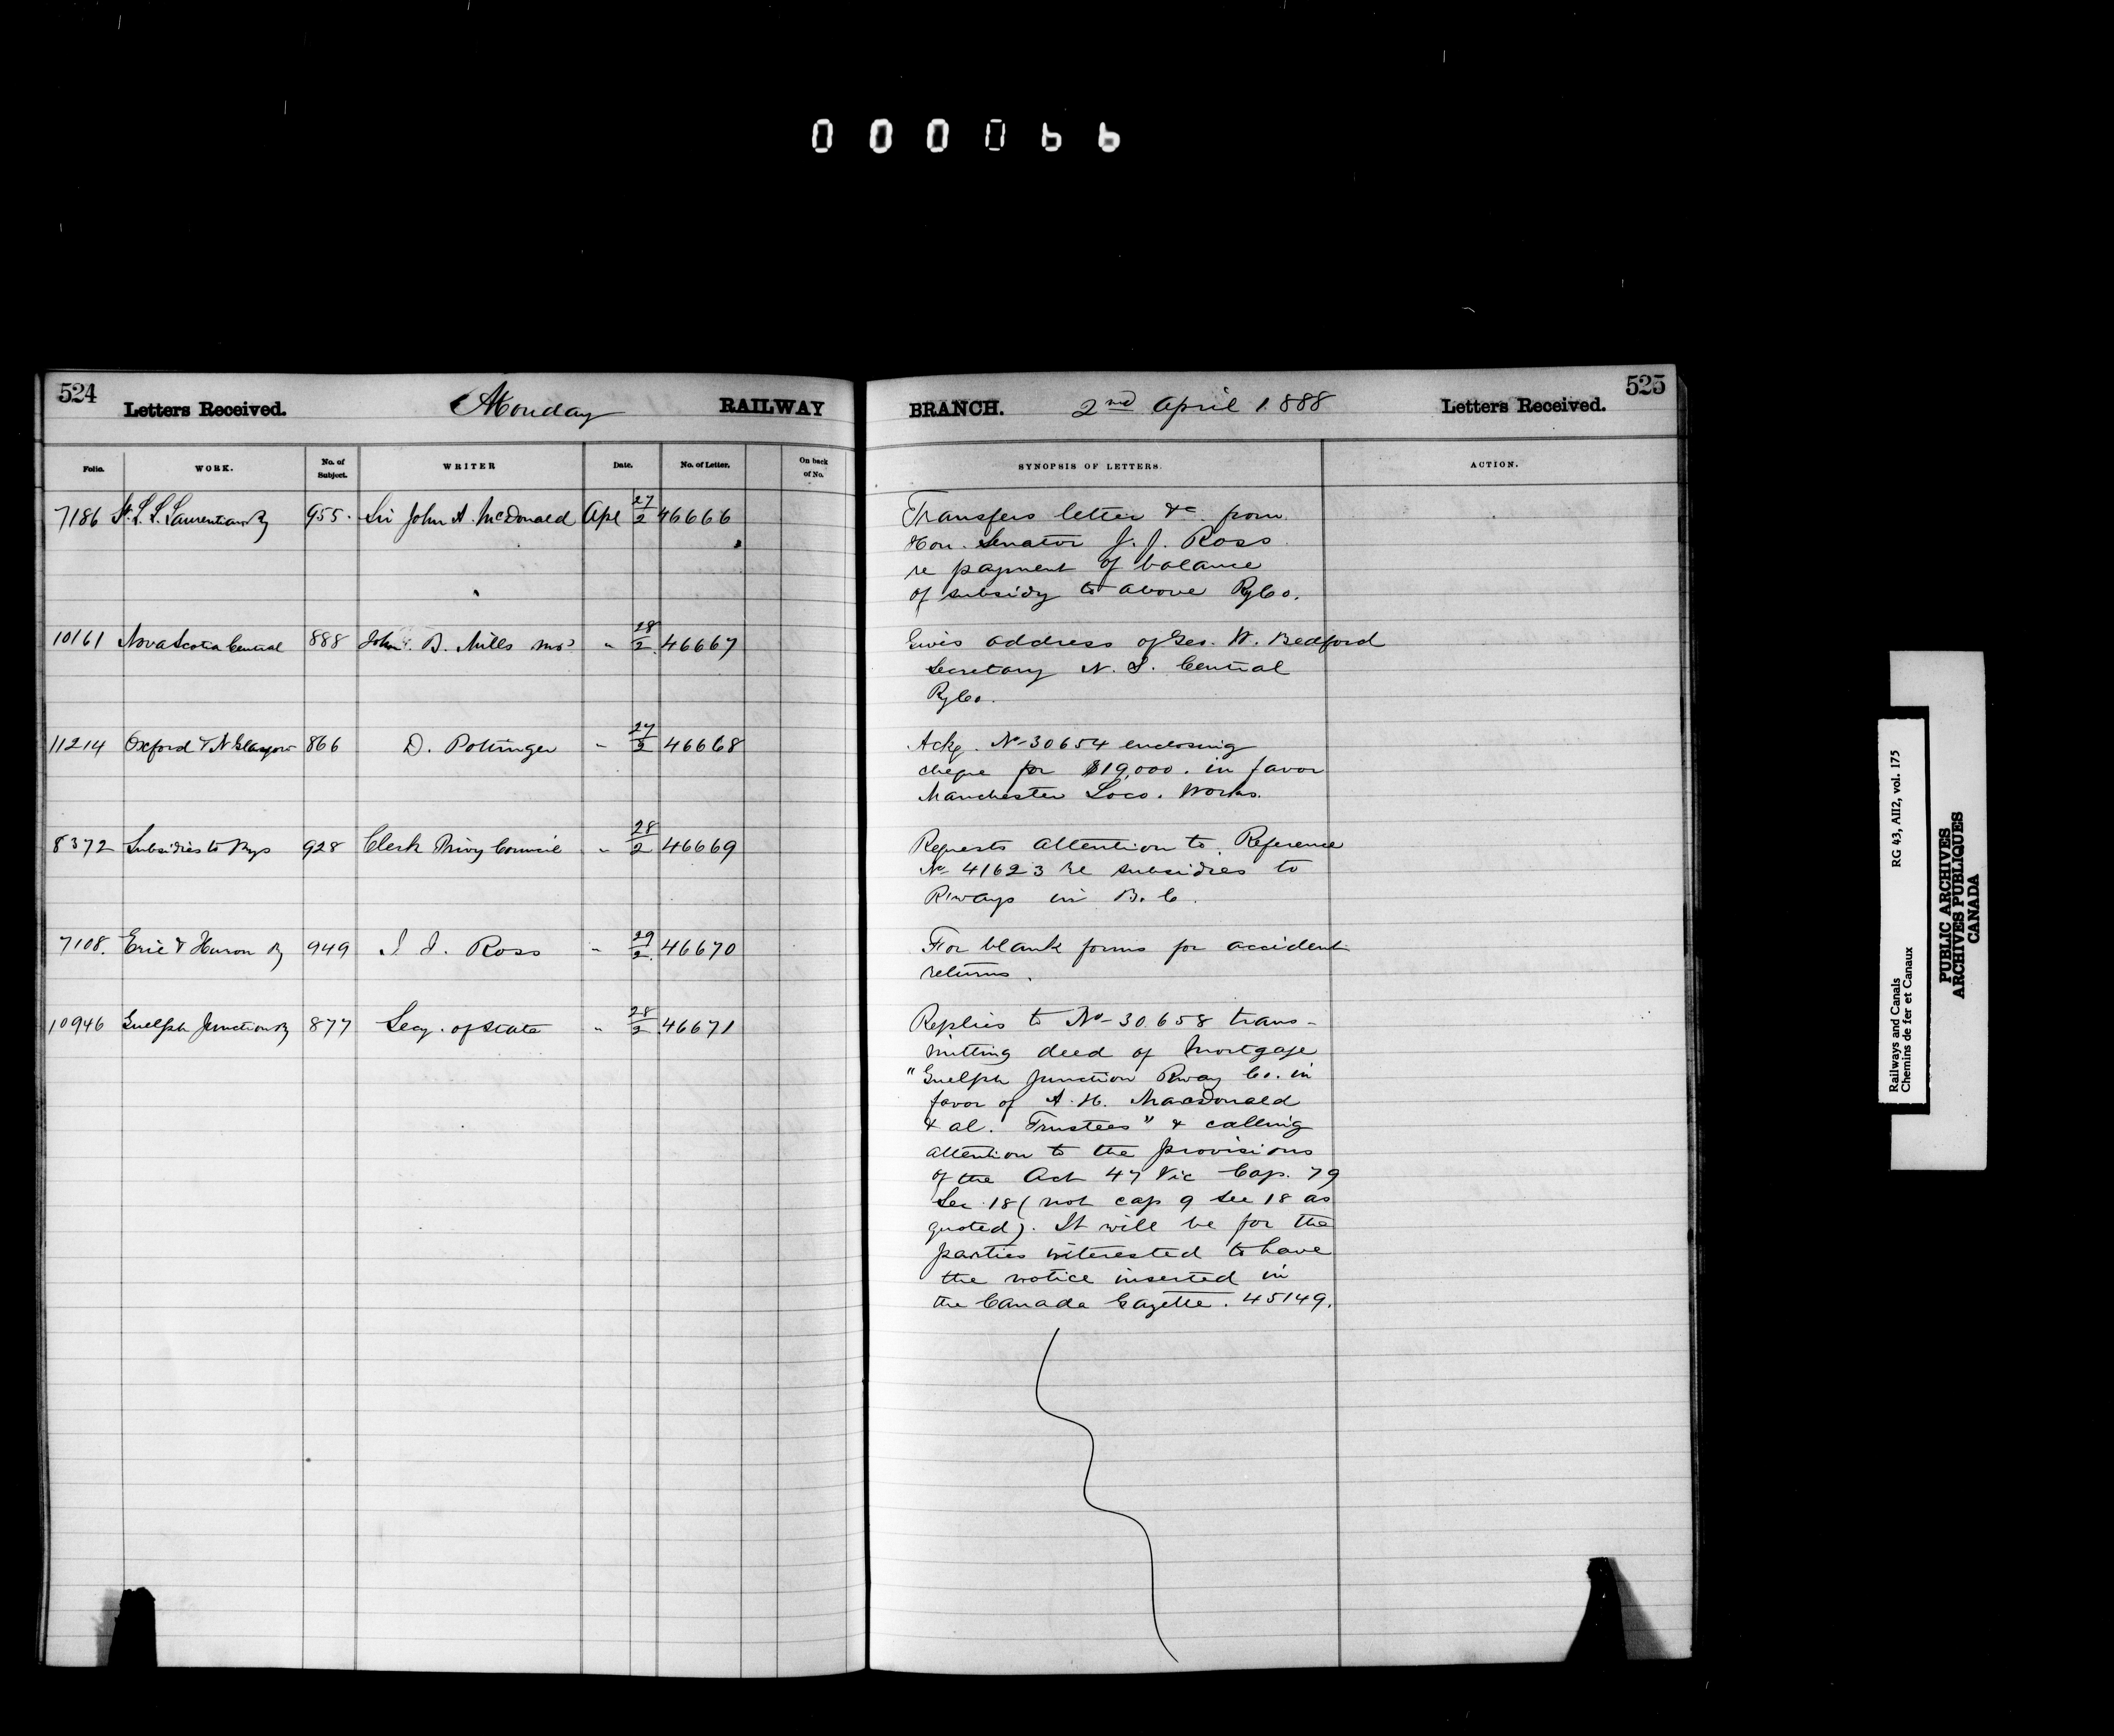 000066
524 Letters Received. Monday RAILWAY
Folio. WORK. No. of Subject. WRITER Date. No. of Letter. On back of No.
7186 St. L. L. Laurentian Ry 955. Sir John A. McDonald Apl 27/2 46666
10161 Nova Scotia Central 888 John B. Mills 28/2 46667
11214 Oxford & N Glasgow 866 D. Pottinger " 27/2 46668
8372 Subsidies to Rys 928 Clerk Privy Council " 28/2 46669
7108. Erie & Huron Ry 949 J. J. Ross " 29/2 46670
10946 Guelph Junction Ry 877 Secy. of State " 28/2 46671
BRANCH. 2nd April 1888 Letters Received. 525
SYNOPSIS OF LETTERS. ACTION.
Transfers letter &c. from
Hon. Senator J. J. Ross
re payment of balance
of subsidy to above Ry Co.
Gives address of Geo. W. Bedford
Secretary N. S. Central
Ry Co.
Ackg. No 30654 enclosing
cheque for $19,000. in favor
Manchester Loco. Works.
Requests attention to Reference
No 41623 re subsidies to
Rways in B. C.
For blank forms for accident
returns.
Replies to No 30658 trans-
mitting deed of Mortgage
"Guelph Junction Rway Co. in
favor of A. H. Macdonald
& al. Trustees" & calling
attention to the provisions
of the Act 47 Vic Cap. 79
Sec 18 (not cap 9 sec 18 as
quoted). It will be for the
parties interested to have
the notice inserted in
the Canada Gazette. 45149.
Railways and Canals RG 43, AII2, vol. 175
Chemins de fer et Canaux
PUBLIC ARCHIVES
ARCHIVES PUBLIQUES
CANADA